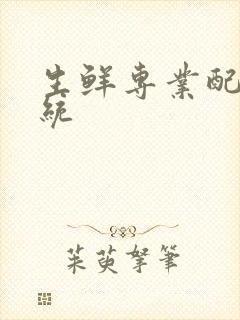 生鲜専業配
統
茱萸拏筆